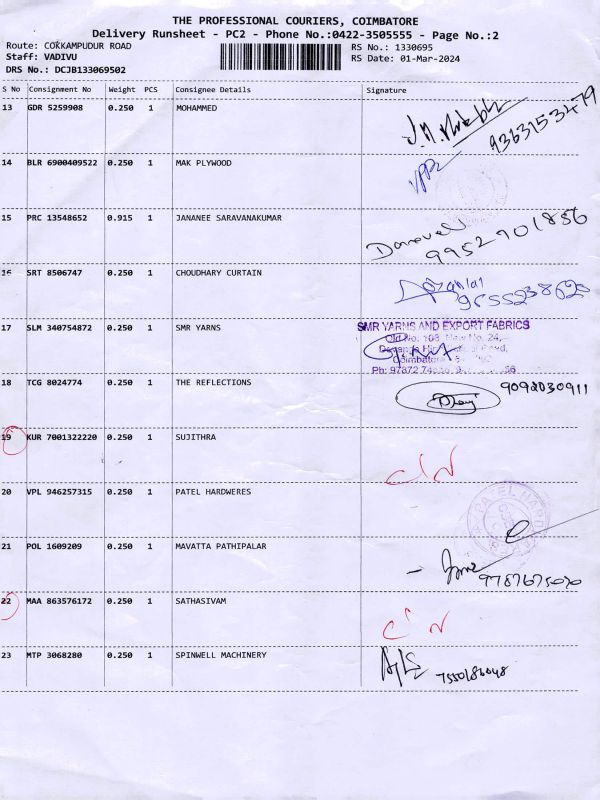 THE PROFESSIONAL COURIERS, COIMBATORE
Delivery Runsheet - PC2 - Phone No.:0422-3505555 - Page No.:2
Route: COKKAMPUDUR ROAD
Staff: VADIVU
DRS No.: DCJB133069502
RS No.: 1330695
RS Date: 01-Mar-2024
S No Consignment No Weight PCS Consignee Details Signature
13 GDR 5259908 0.250 1 MOHAMMED
9363153479
14 BLR 6900409522 0.250 1 MAK PLYWOOD
15 PRC 13548652 0.915 1 JANANEE SARAVANAKUMAR
9952701856
16 SRT 8506747 0.250 1 CHOUDHARY CURTAIN
17 SLM 340754872 0.250 1 SMR YARNS
SMR YARNS AND EXPORT FABRICS
Old No. 108, New No. 24,
Coimbatore
Ph: 97872
18 TCG 8024774 0.250 1 THE REFLECTIONS
9092030911
19 KUR 7001322220 0.250 1 SUJITHRA
20 VPL 946257315 0.250 1 PATEL HARDWERES
PATEL
21 POL 1609209 0.250 1 MAVATTA PATHIPALAR
22 MAA 863576172 0.250 1 SATHASIVAM
23 MTP 3068280 0.250 1 SPINWELL MACHINERY